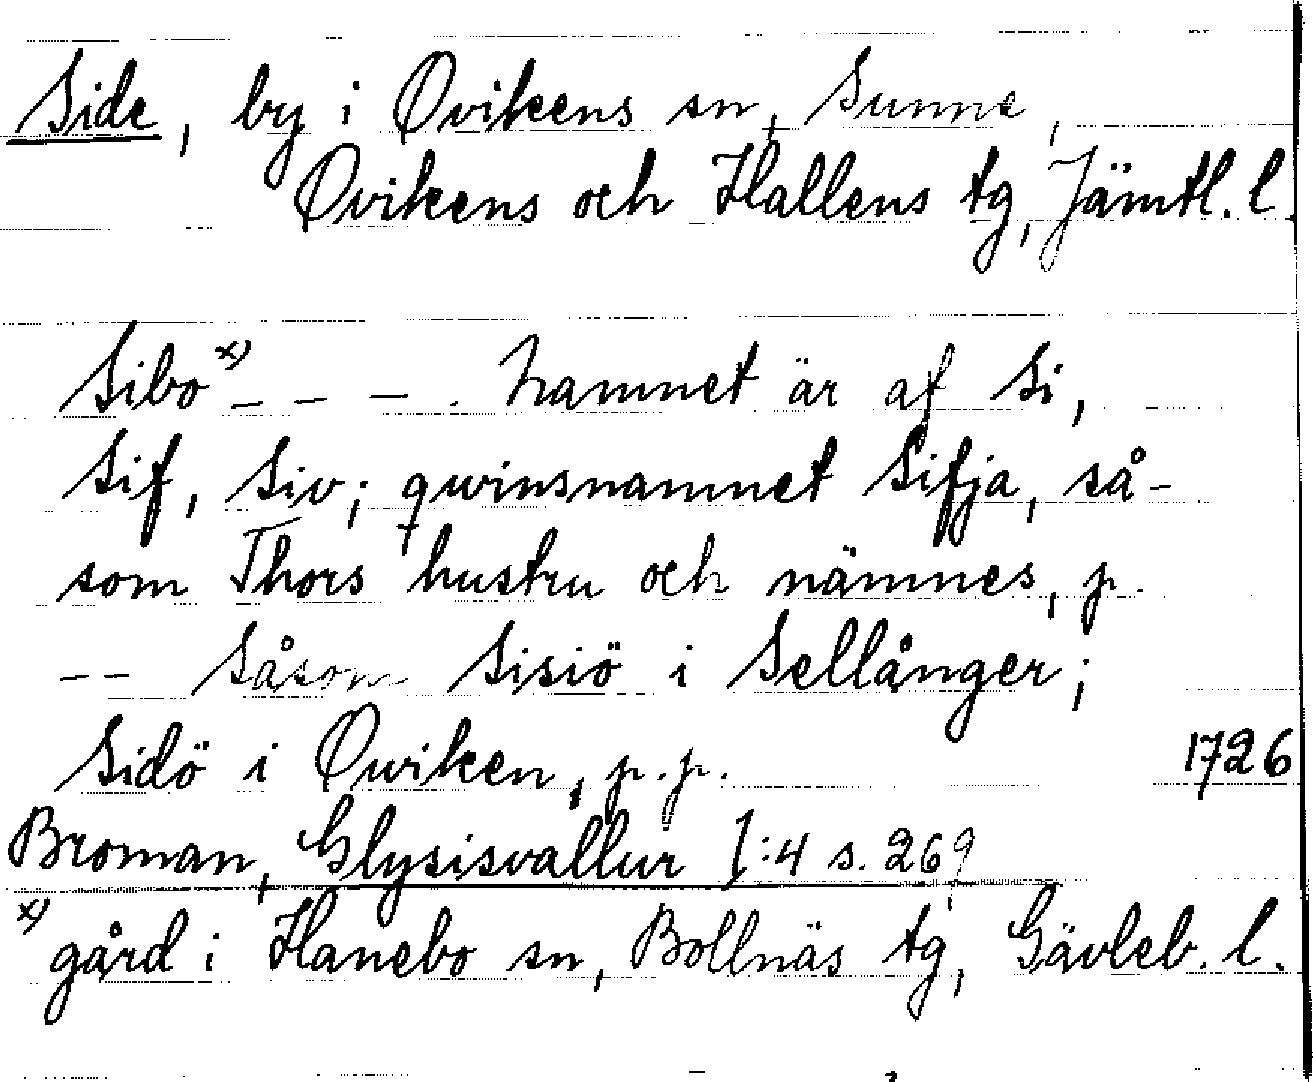 Side, by i Ovikens sn, Sunne,
Ovikens och Hallens tg, Jämtl. l.
Sibo x) _ _ _ . Namnet är af Si,
Sif, Siv; qwinsnamnet Sifja, så-
som Thors hustru och nämnes, p.
-- Såsom Sisiö i Sellånger;
Sidö i Owiken, p.p. 1726
Broman, Glysisvallur I:4 s. 269
x) gård i Hanebo sn, Bollnäs tg, Gävleb. l.